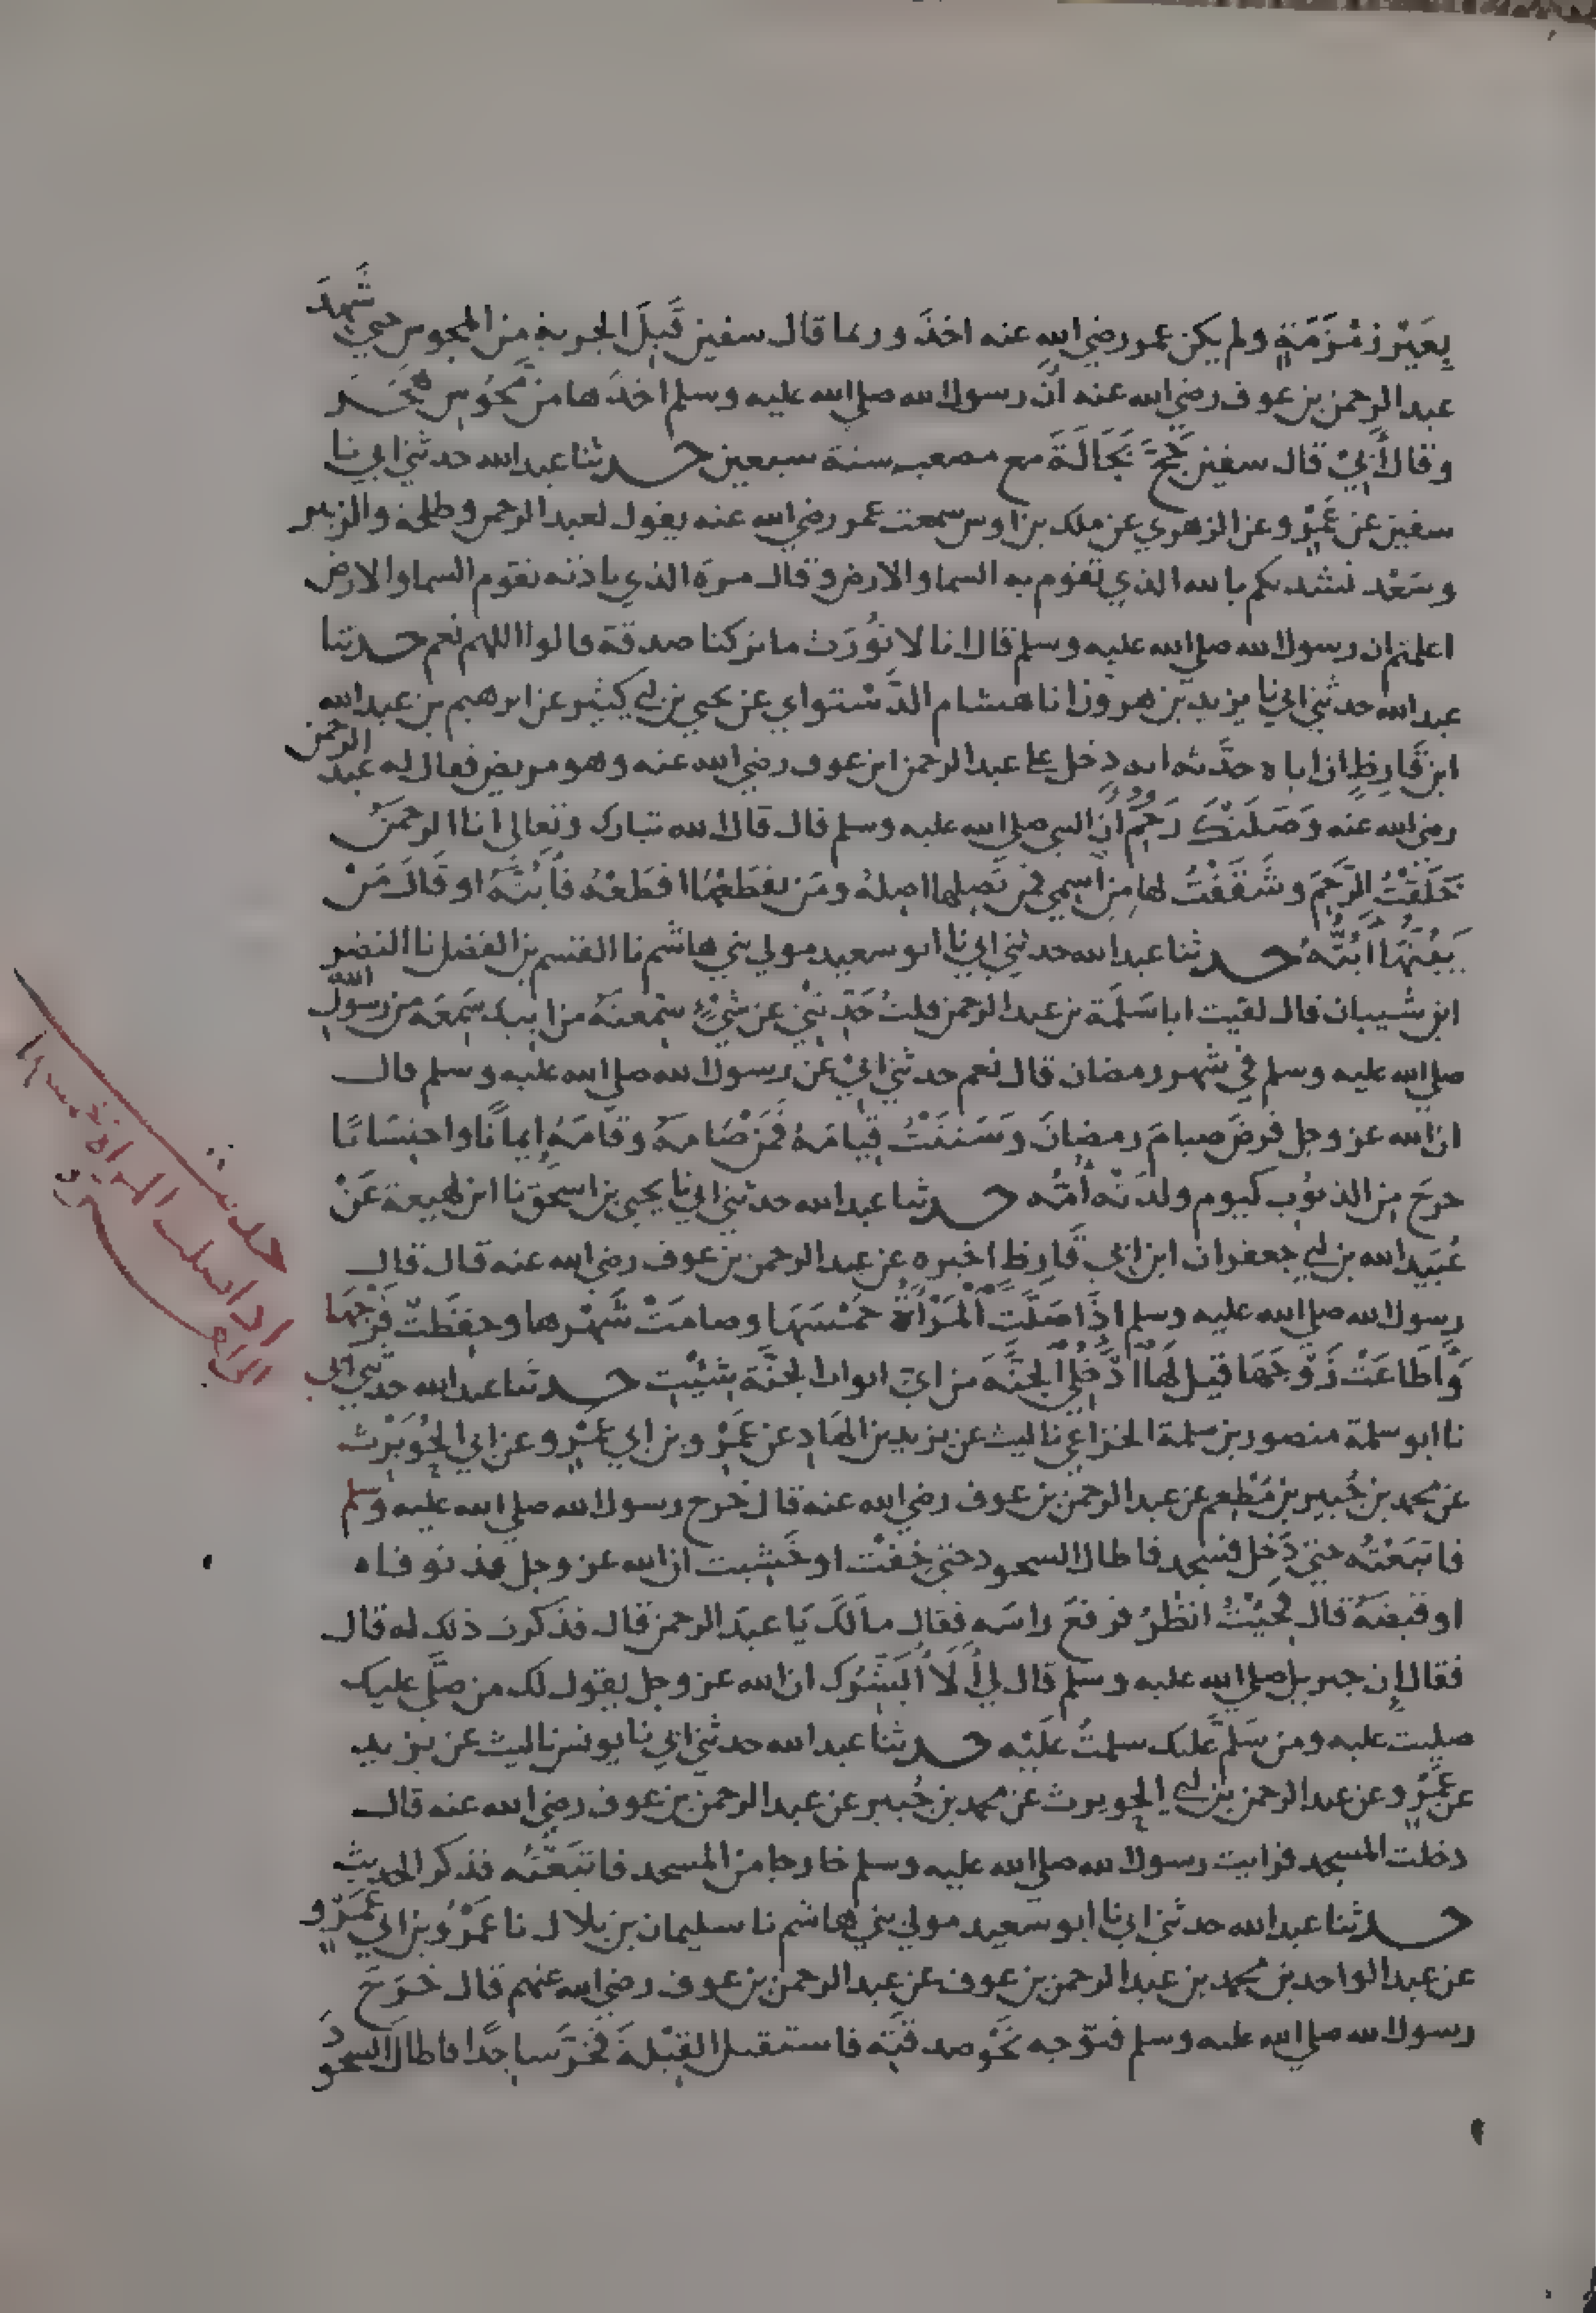 بِغَيْر زَمْزَمَةٍ ولم يكن عمر رضي الله عنه اخذ وربما قال سفين قَبِلَ الجزية من المجوس حتي شَهِدَ
عبد الرحمن بن عوف رضي الله عنه انّ رسول الله صلي الله عليه وسلم اخذها من مَجُوسِ هَجَرَ
وقال أبيْ قال سفين حَجَّ بَجَالَةَ مع مصعب سنة سبعين حدثنا عبد الله حدثني ابي نا
سفين عن عَمْرٍو عن الزهري عن ملك بن اوس سمعت عمر رضي الله عنه يقول لعبد الرحمن وطلحة والزبير
وسَعْد نشدتكم بالله الذي تقوم به السما والارض وقال مرة الذي باذنه تقوم السما والارض
اعلمتم ان رسول الله صلي الله عليه وسلم قال انا لا نُورَث ما تركنا صدقة قالوا اللهم نعم حدثنا
عبد الله حدثني ابي نا يزيد بن هرون انا هشام الدَّسْتواي عن يحيي بن ابي كثير عن ابرهيم بن عبد الله
ابن قَارِظٍ ان اباه حدَّثه انه دخل علي عبد الرحمن ابن عوف رضي الله عنه وهو مريض فقال له عبد الرحمن
رضي الله عنه وَصَلَتْكَ رَحِمٌ ان النبي صلي الله عليه وسلم قال قال الله تبارك وتعالي انا الرحمنُ
خَلَقْتُ الرَّحِمَ وشَقَقْتُ لها مِن اسمي فمن يَصِلها اصِلهُ ومَن يقطَعْهَا اقطَعْهُ فأَبُتَّهُ او قَالَ مَنْ
يَبُتَّهَا أَبُتَّهُ حدثنا عبد الله حدثني ابي نا ابو سعيد مولي بني هاشم نا القسم بن الفضل نا النضر
ابن شيبان قال لقيت ابا سَلَمَة بن عبد الرحمن قلتُ حَدِّثنِي عن شيْءٍ سَمِعتَهُ من ابيك سَمِعَهُ من رسول الله
صلي الله عليه وسلم في شهر رمضان قال نعم حدثني ابيْ عن رسول الله صلي الله عليه وسلم قال
ان الله عز وجل فرضَ صيامَ رمضانَ وَسَننْتُ قِيَامَهُ فمَنْ صَامَهُ وقَامَهُ إيمانًا واحتِسَابًا
خرجَ مِن الذنوُب كيوم ولدَتْه أُمُّه حدثنا عبد الله حدثني ابي نا يحيي بن اسحق نا ابن لهيعة عَنْ
عُبَيد الله بن ابي جعفر ان ابن ابي قَارِظ اخبره عن عبد الرحمن بن عوف رضي الله عنه قال قال
رسول الله صلي الله عليه وسلم اذا صَلَّتِ الْمَرْأَةُ خمْسَهَا وصامَتْ شَهْرها وحفِظَتْ فَرْجَهَا
وَأطَاعَتْ زَوْجَهَا قيل لَها ادْخُلِي الجنَّةَ من ايّ ابواب الجنَّة شئْتِ حدثنا عبد الله حدثني ابي
نا ابو سلمة منصور بن سلمة الخزاعي نا ليث عن يزيد بن الهَادِ عن عَمْرو بن ابي عَمْرٍو عن ابي الحُوَيْرث
عن محمد بن جُبير بن مُطْعِم عن عبد الرحمن بن عوف رضي الله عنه قال خرج رسول الله صلي الله عليه وسلم
فاتبَعْتُه حتي دَخل فسجد فاطال السجود حتي خِفْت او خَشِيت ان الله عز وجل قد توفاه
او قبضَهُ قال فجِئْتُ انظُرُ فرفَعَ راسَه فقال مالَكَ يَا عبدَ الرحمن قال فذكرت ذلك له قال
فقال إن جبريل صلي الله عليه وسلم قال لِي أَلَا أُبَشِّرك ان الله عز وجل يقول لك من صلَّي عليك
صليت عليه ومن سَلّم عليك سلمتُ عَليْه حدثنا عبد الله حدثني ابي نا يونس نا ليث عن يزيد
عن عَمْرٍو عن عبد الرحمن بن ابي الحويرث عن محمد بن جُبير عن عبد الرحمن بن عوف رضي الله عنه قال
دخلت المسجد فرايت رسول الله صلي الله عليه وسلم خارجا من المسجد فاتبَعْتُه فذكر الحديث
حدثنا عبد الله حدثني ابي نا ابو سَعِيد مولي بني هاشم نا سليمان بن بلال نا عَمْرُو بن ابي عَمْرٍو
عن عبد الواحد بن محمد بن عبد الرحمن بن عوف عن عبد الرحمن بن عوف رضي الله عنهم قال خَرَجَ
رسول الله صلي الله عليه وسلم فتوّجه نَحْو صدقتِه فاستقبل القِبْلةَ فخَرَّ ساجدًا فاطال السجُودَ
حديث
اذا صلت المراة خمسها